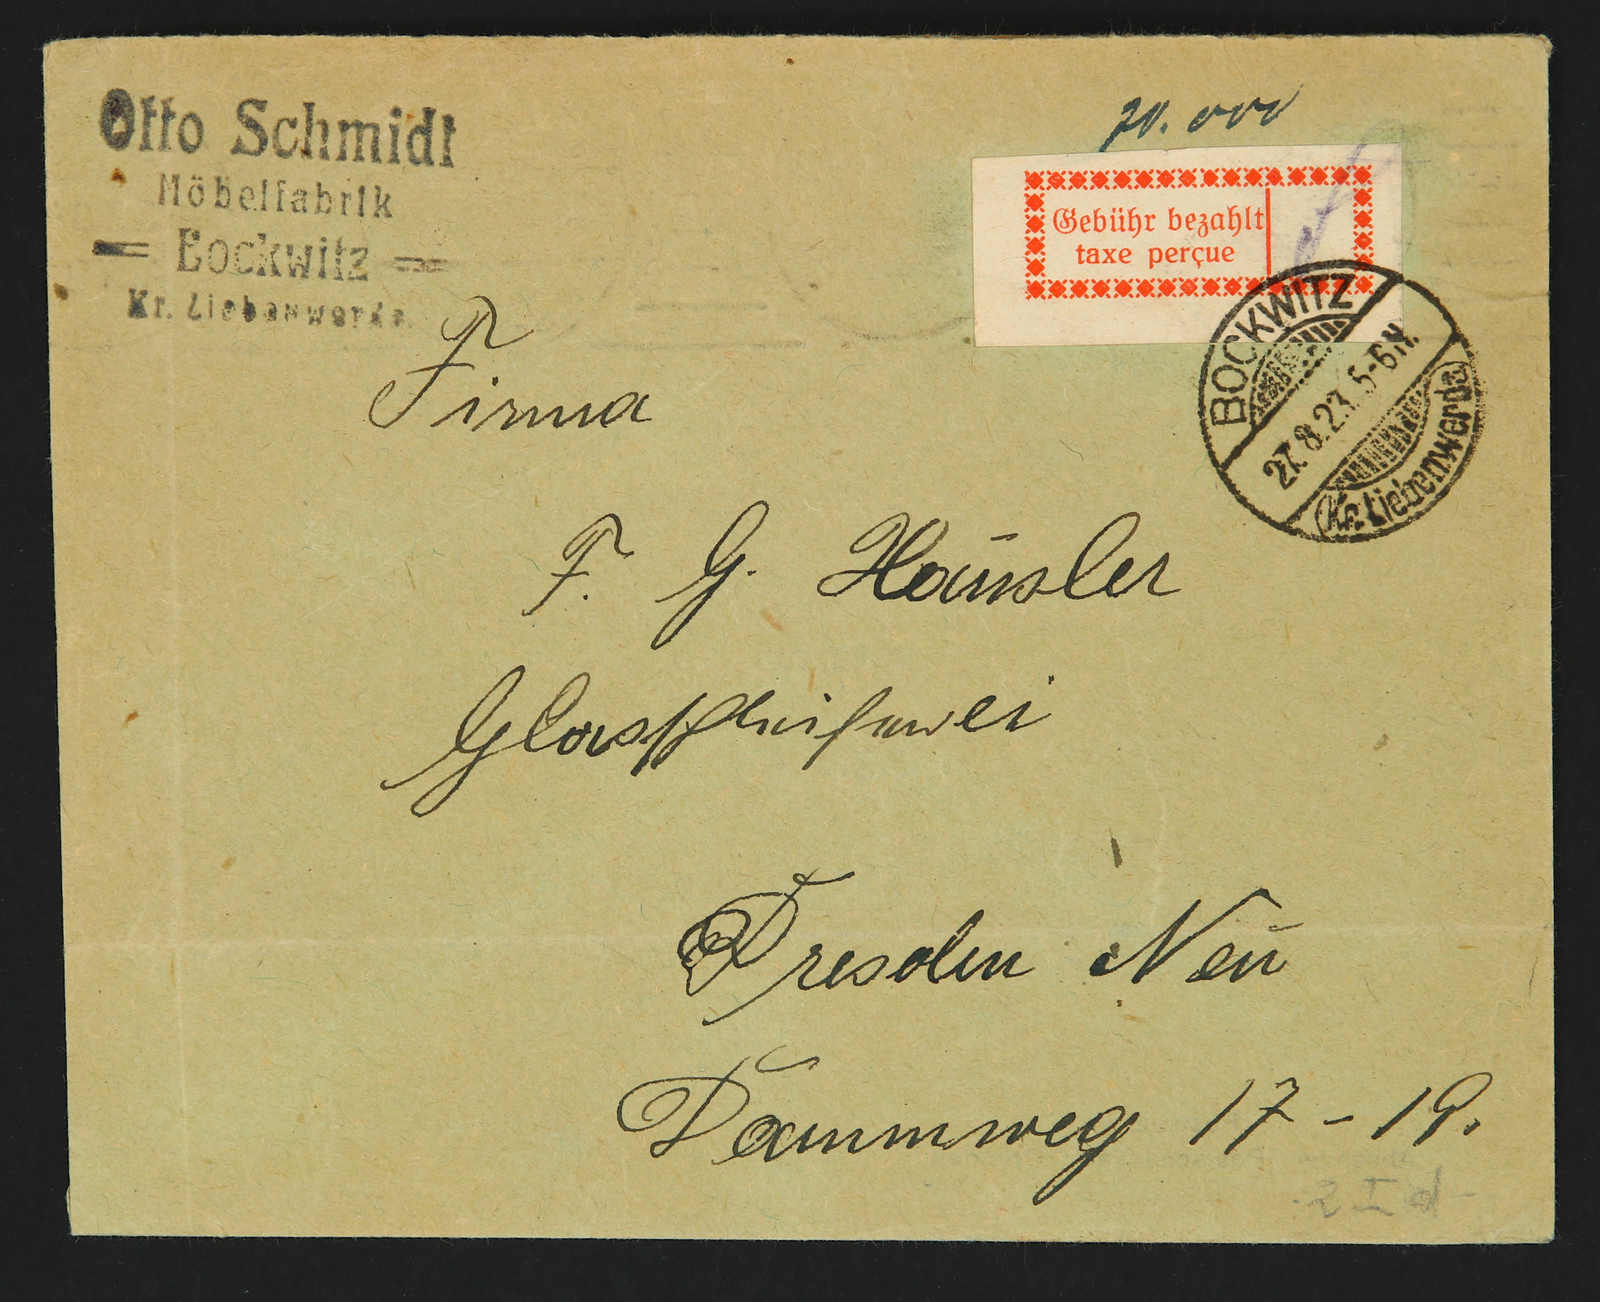 Otto Schmidt
Möbelfabrik
Bockwitz
Kr. Liebenwerda
20.000
Gebühr bezahlt
taxe perçue
BOCKWITZ
27.8.23. 5-6 N.
(Kr. Liebenwerda)
Firma
F. G. Häusler
Glasschleiferei
Dresden Neu
Dammweg 17-19.